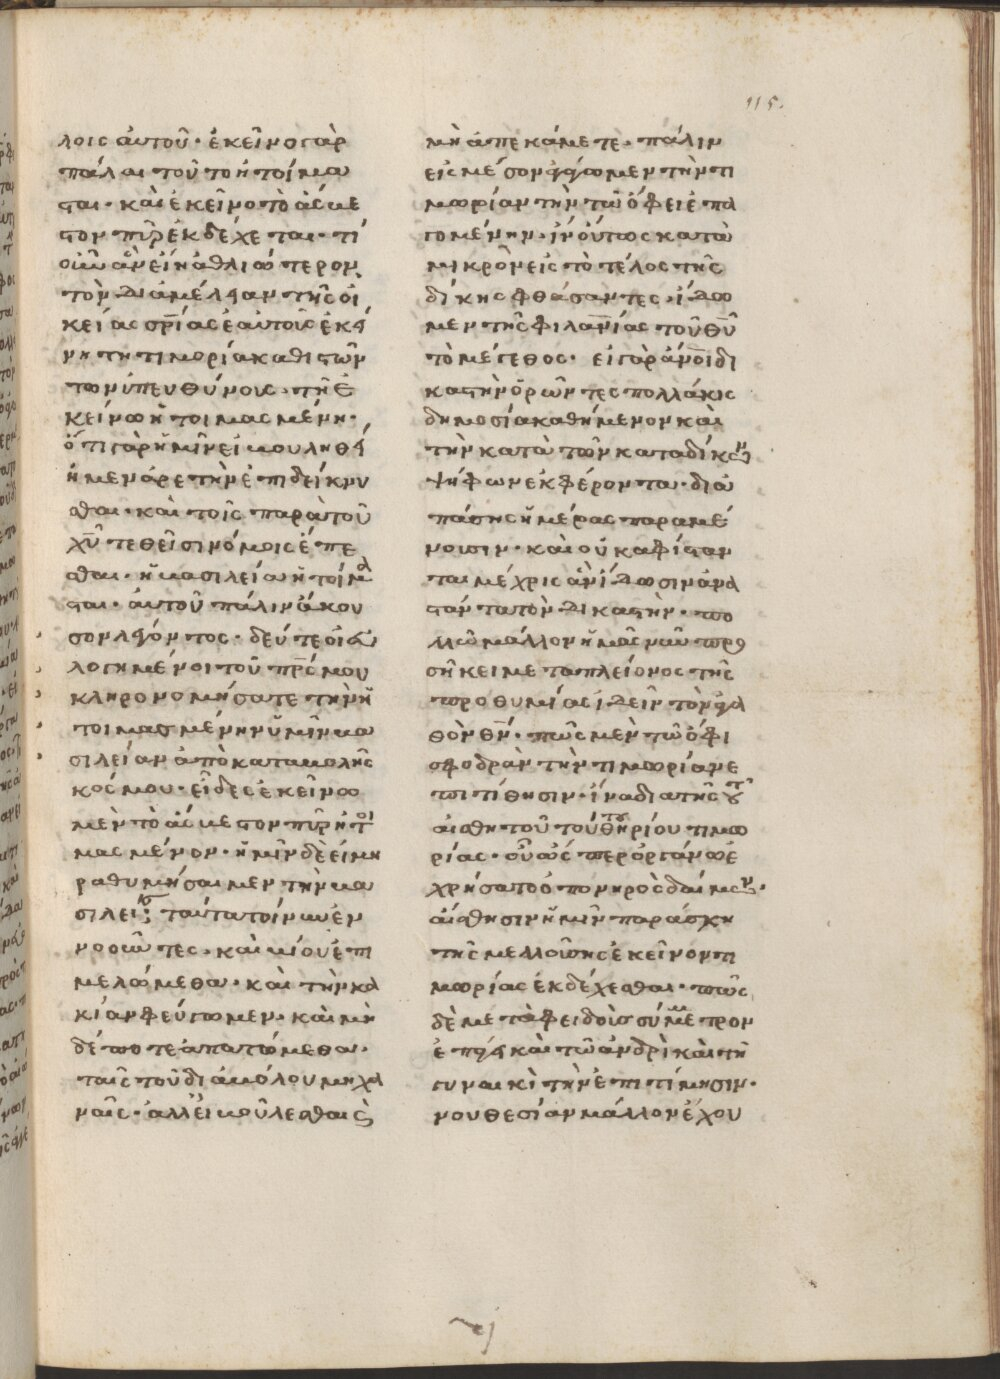 115.
λοις αὐτοῦ· ἐκεῖνο γὰρ
πάλαι τοῦτο ἡτοίμα
σται· καὶ ἐκεῖνο τὸ ἄσβε
στον πῦρ ἐκδέχεται· τί
οὖν ἂν εἴη ἀθλιώτερον
τῶν διὰ μέλλησαν τῆς οἰ
κείας σρίας ἑαυτοὺς ἐκεί
νη τῆ τιμορία καθιστῶν
των ὑπευθύνους· τῆ ἐ
κείνω ἡτοιμασμένη·
ὅτι γὰρ ἡμῖν εἰ βουληθεί
ημεν ἀρετὴν ἐπιδείκνυ
σθαι· καὶ τοῖς παρὰ τοῦ
χῦ τεθεῖσι νόμοις ἕπε
σθαι· ἡ βασιλεία ἡτοίμα
σται· αὐτοῦ πάλιν ἄκου
σον λέγοντος· δεῦτε οἱ εὐ
λογημένοι τοῦ πρς μου
κληρονομήσατε τὴν ἡ
τοιμασμένην ὑμῖν βα
σιλείαν ἀπὸ καταβολῆς
κόσμου· εἶδες ἐκείνω
μὲν τὸ ἄσβεστον πῦρ ἡτοι
μασμένον· ἡμῖν δὲ εἰ μὴ
ραθυμήσαιμεν τὴν βα
σιλεί· ταῦτα τοίνυν ἐν
νοοῦντες· καὶ βίου ἐπι
μελώμεθα· καὶ τὴν κα
κίαν φεύγωμεν· καὶ μη
δέποτε ἀπατώμεθα·
ταῖς τοῦ διαβόλου μηχα
ναῖς· ἀλλ' εἰ βούλεσθαι καὶ
μὴ ἀπεκάμετε· πάλιν
εἰς μέσον ἀγάγωμεν τὴν τι
μωρίαν τὴν τῶ ὄφει ἐπα
γομένην· ἵν' οὕτως κατὰ
μικρὸν εἰς τὸ τέλος τῆς
δίκης φθάσαντες· ἴδω
μεν τῆς φιλανίας τοῦ θῦ
τὸ μέγεθος· εἰ γὰρ ἄνοι δι
καστὴν ὁρῶντες πολλάκις
δημοσία καθήμενον καὶ
τὴν κατὰ τῶν καταδίκων
ψῆφων ἐκφέροντα· διὰ
πάσης ἡμέρας παραμέ
νουσιν· καὶ οὐκ ἀφίσταν
ται μέχρις ἂν ἴδωσιν ἀνα
στάντα τὸν δικαστήν· πο
λλῶ μᾶλλον ἡμᾶς νῦν προσ
ήκει μετὰ πλείονος τῆς
προθυμίας ἰδεῖν τὸν ἀγα
θὸν θν· πῶς μὲν τῶ ὄφι
σφοδρὰν τὴν τιμωρίαν ἐ
πιτίθησιν· ἵνα διὰ τῆς τού
αἰσθητοῦ τούτου θηρίου τιμω
ρίας· οὗ ὥσπερ ὀργάνω ἐ
χρήσατο ὁ πονηρὸς δαίμων·
αἴσθησιν ἡμῖν παράσχη
τῆς μελλούσης ἐκεῖνον τι
μωρίας ἐκδέχεσθαι· πῶς
δὲ μετὰ φειδοῦς συμμέτρον
ἐπάγει καὶ τῶ ἀνδρὶ καὶ τῆ
γυναικὶ τὴν ἐπιτίμησιν·
νουθεσίαν μᾶλλον ἔχου